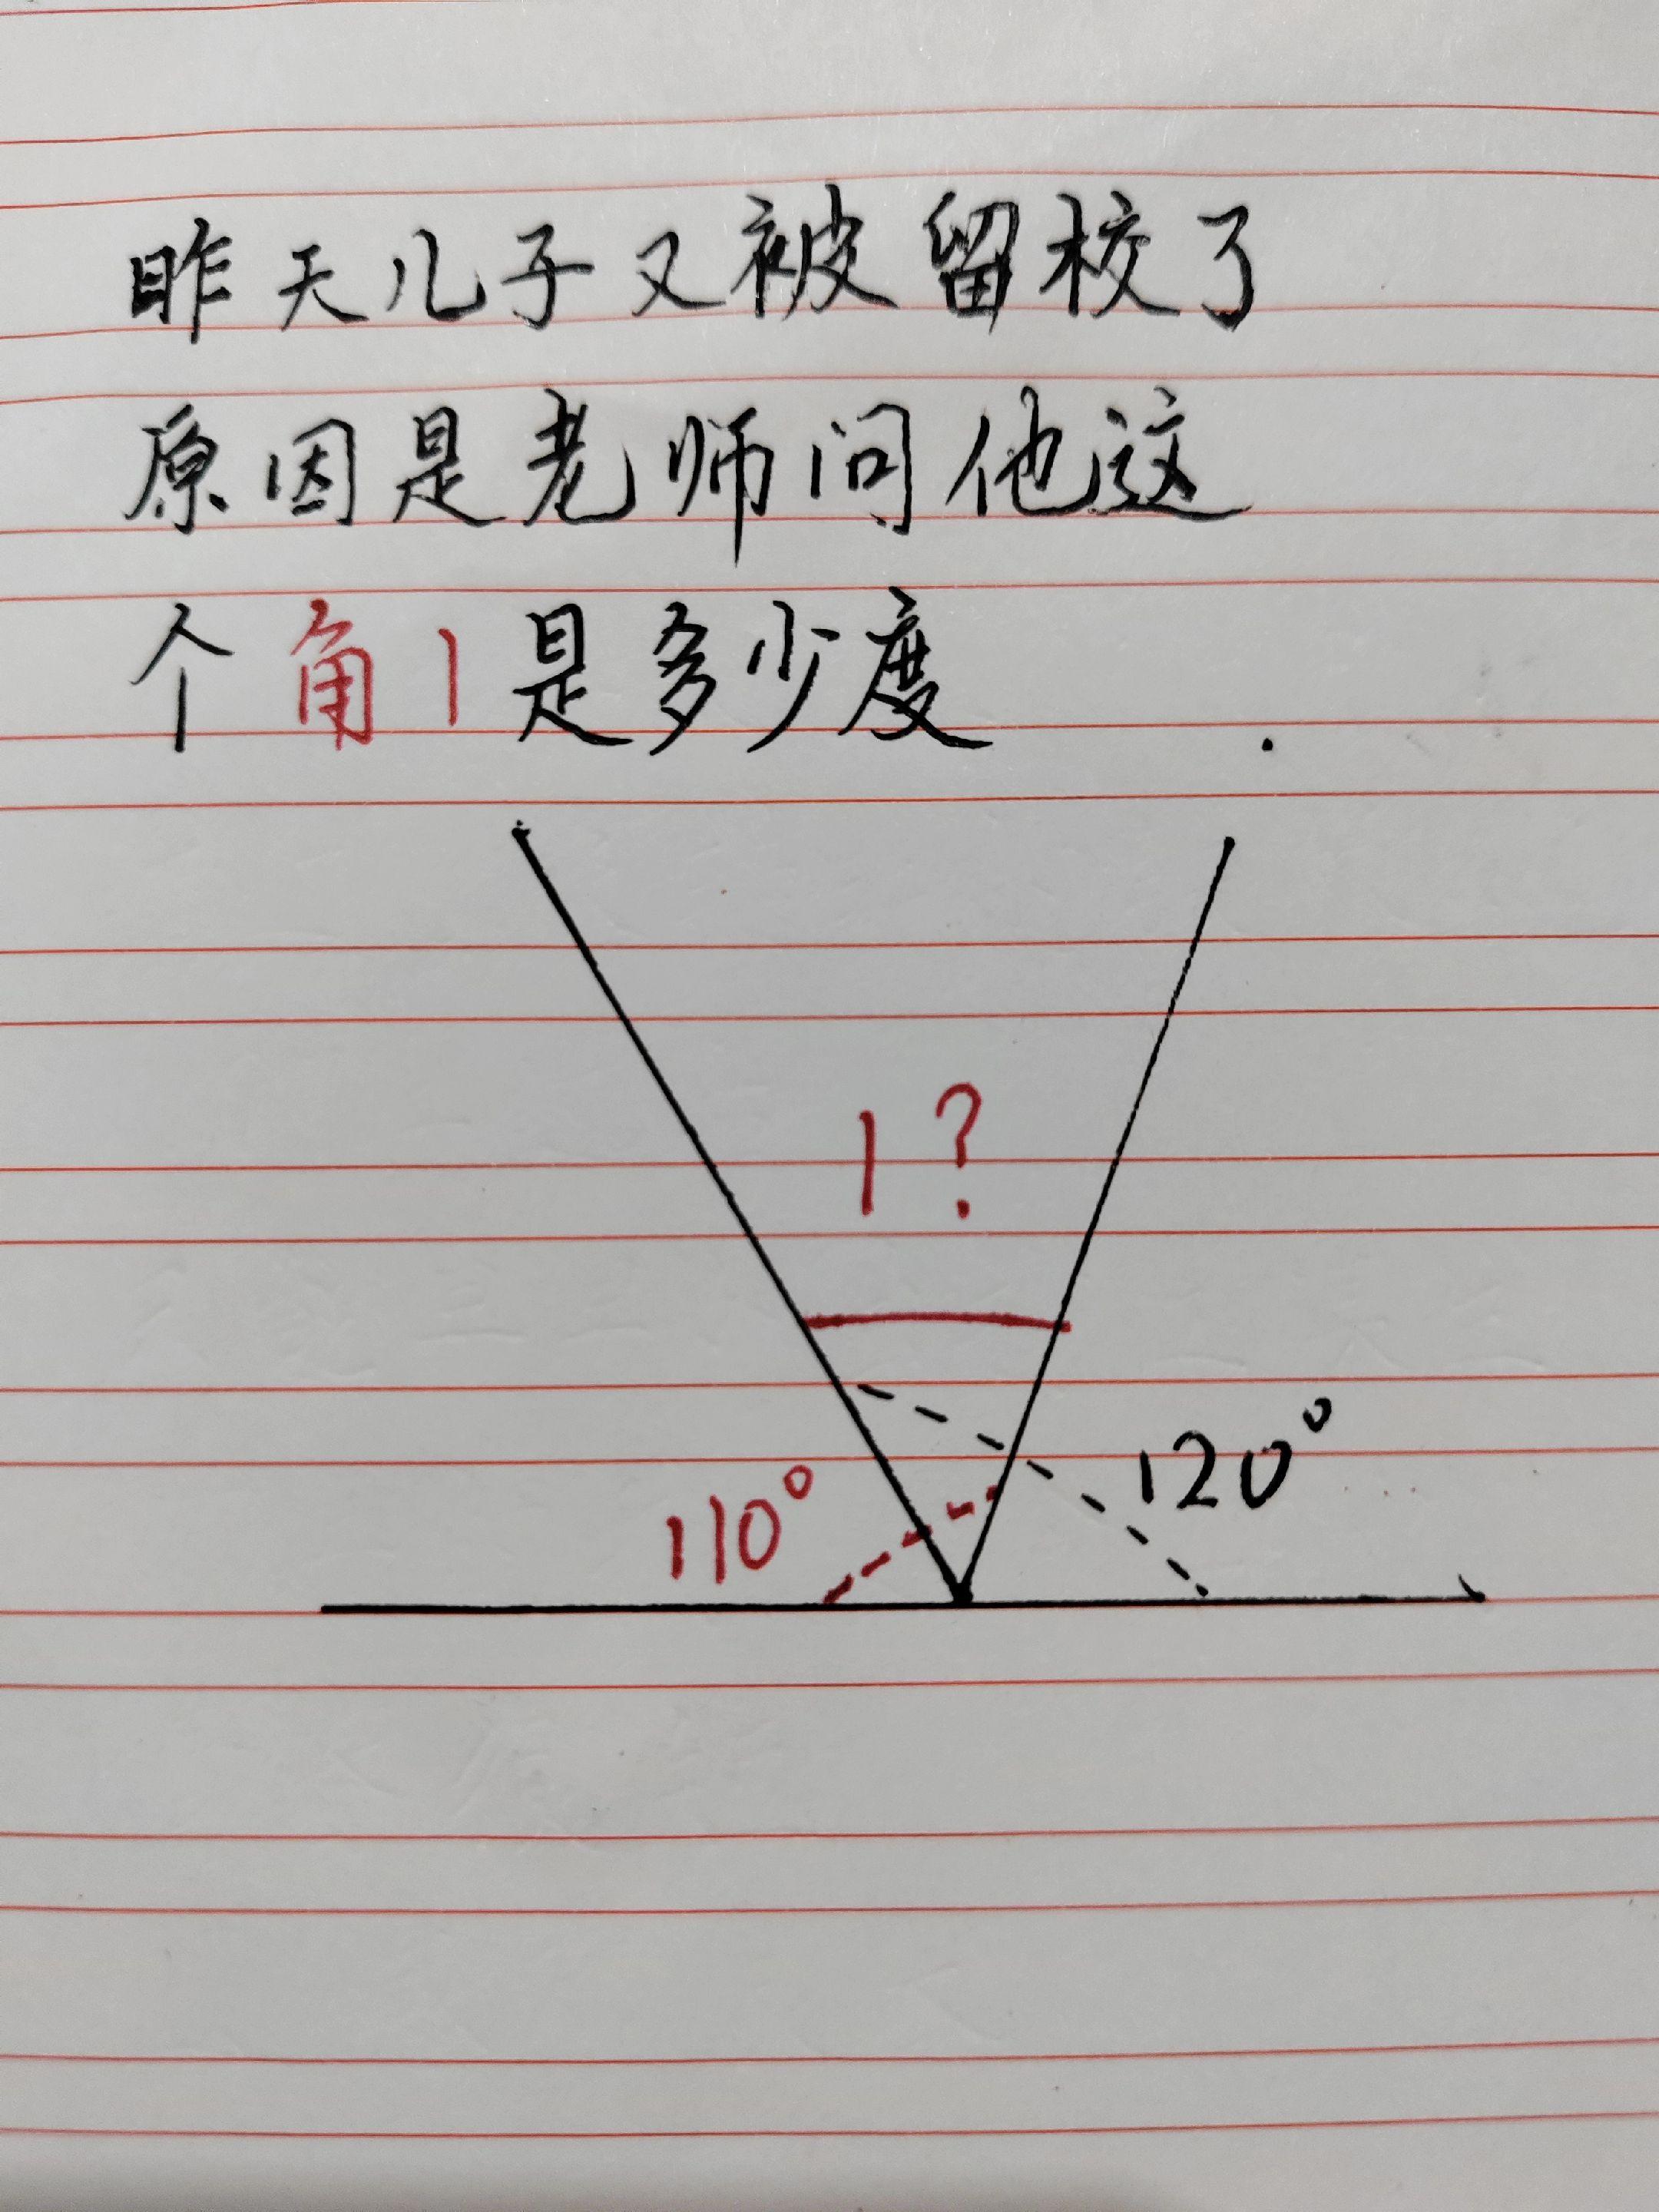 昨天儿子又被留校了
原因是老师问他这
个角1是多少度
1?
120°
110°